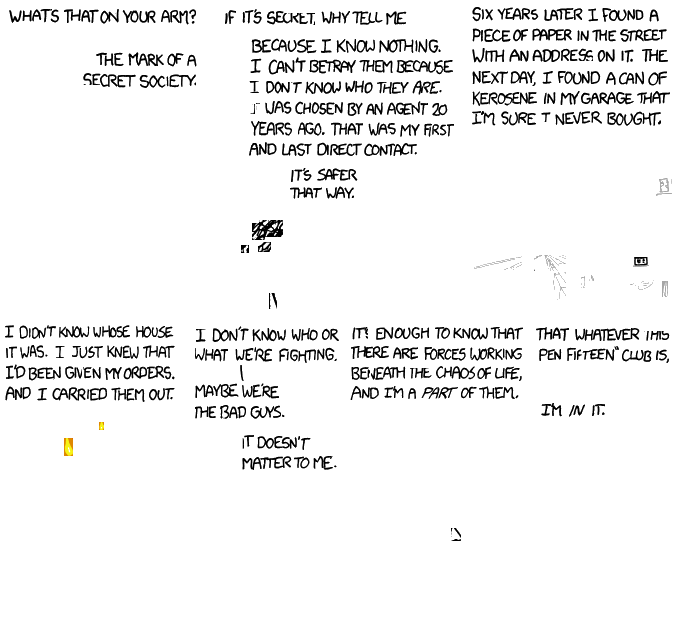 WHAT'S THAT ON YOUR ARM?
THE MARK OF A
SECRET SOCIETY.
IF IT'S SECRET, WHY TELL ME
BECAUSE I KNOW NOTHING.
I CAN'T BETRAY THEM BECAUSE
I DON'T KNOW WHO THEY ARE.
I WAS CHOSEN BY AN AGENT 20
YEARS AGO. THAT WAS MY FIRST
AND LAST DIRECT CONTACT.
IT'S SAFER
THAT WAY.
SIX YEARS LATER I FOUND A
PIECE OF PAPER IN THE STREET
WITH AN ADDRESS ON IT. THE
NEXT DAY, I FOUND A CAN OF
KEROSENE IN MY GARAGE THAT
I'M SURE I NEVER BOUGHT.
I DIDN'T KNOW WHOSE HOUSE
IT WAS. I JUST KNEW THAT
I'D BEEN GIVEN MY ORDERS.
AND I CARRIED THEM OUT.
I DON'T KNOW WHO OR
WHAT WE'RE FIGHTING.
MAYBE WE'RE
THE BAD GUYS.
IT DOESN'T
MATTER TO ME.
IT'S ENOUGH TO KNOW THAT
THERE ARE FORCES WORKING
BENEATH THE CHAOS OF LIFE,
AND I'M A PART OF THEM.
THAT WHATEVER THIS
PEN FIFTEEN" CLUB IS,
I'M IN IT.